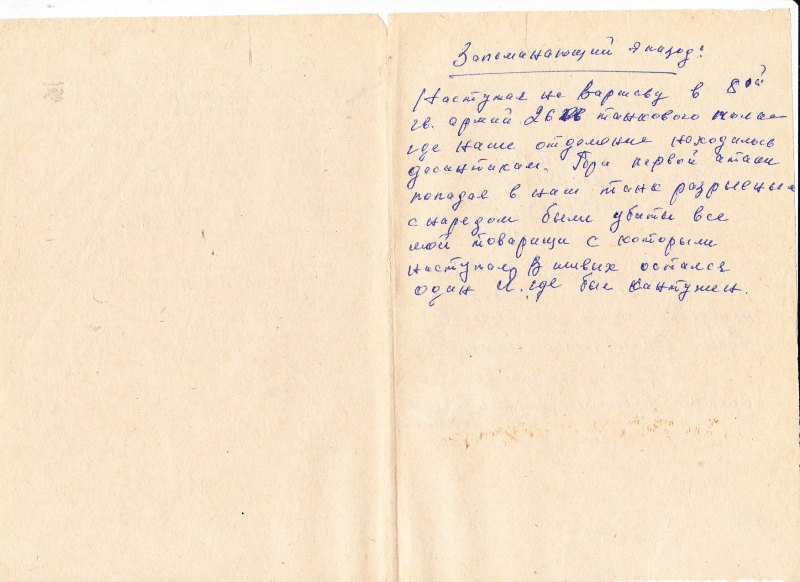 Запоминающий эпизод:
Наступая на Варшаву в 8ой
гв. армий 26 танкового полка
где наше отделение находилось
десантикам. При первой атаки
попадая в наш танк разрывным
снаредом были убиты все
мои товарищи с которыми
наступал, В живых остался
один Я. где был кантужен.